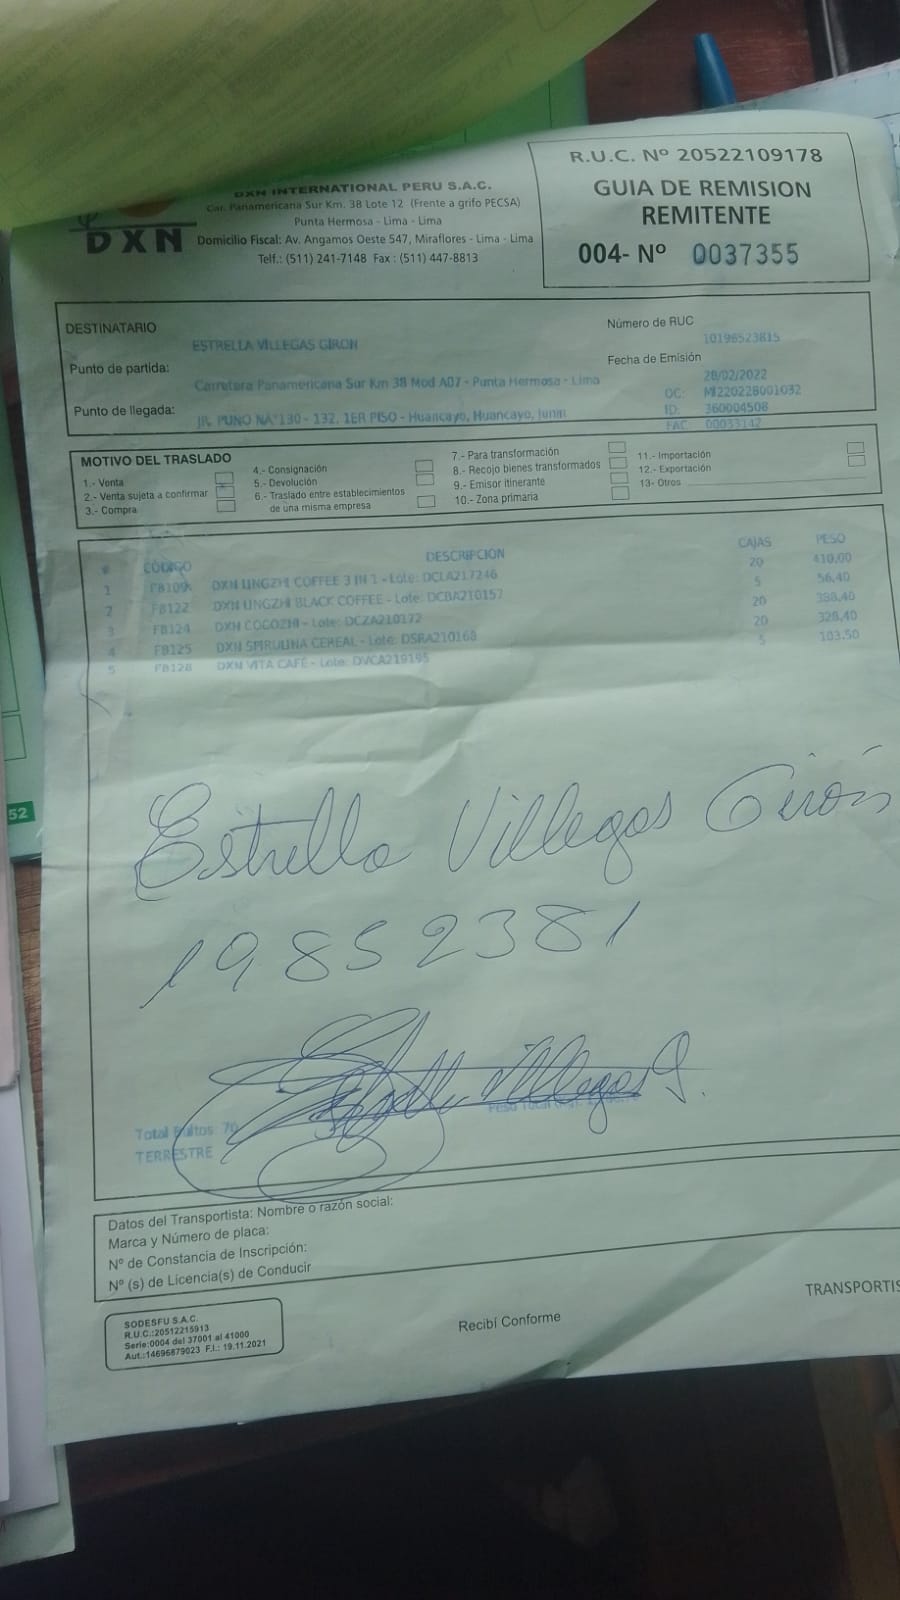 DXN INTERNATIONAL PERU S.A.C.
Car. Panamericana Sur Km. 38 Lote 12 (Frente a grifo PECSA)
Punta Hermosa - Lima - Lima
DXN
Domicilio Fiscal: Av. Angamos Oeste 547, Miraflores - Lima - Lima
Telf.: (511) 241-7148 Fax : (511) 447-8813
R.U.C. Nº 20522109178
GUIA DE REMISION
REMITENTE
004- Nº 0037355
DESTINATARIO
ESTRELLA VILLEGAS GIRON
Número de RUC
10198523815
Punto de partida:
Carretera Panamericana Sur Km 38 Mod A07 - Punta Hermosa - Lima
Fecha de Emisión
28/02/2022
Punto de llegada:
JR. PUNO NA°130 - 132. 1ER PISO - Huancayo, Huancayo, Junin
OC: MI220228001032
ID: 360004508
FAC 00033142
MOTIVO DEL TRASLADO
1.- Venta
2.- Venta sujeta a confirmar
3.- Compra
4.- Consignación
5.- Devolución
6.- Traslado entre establecimientos
de una misma empresa
7.- Para transformación
8.- Recojo bienes transformados
9.- Emisor itinerante
10.- Zona primaria
11.- Importación
12.- Exportación
13- Otros
# CÓDIGO DESCRIPCIÓN CAJAS PESO
1 FB109 DXN LINGZHI COFFEE 3 IN 1 - Lote: DCLA217246 20 410.00
2 FB122 DXN LINGZHI BLACK COFFEE - Lote: DCBA210157 5 56.40
3 FB124 DXN COCOZHI - Lote: DCZA210172 20 388.40
4 FB125 DXN SPIRULINA CEREAL - Lote: DSRA210168 20 328.40
5 FB128 DXN VITA CAFÉ - Lote: DVCA219195 5 103.50
52
Estrella Villegas Girón
19852381
Estrella Villegas G.
Total Bultos: 70
Peso Total
TERRESTRE
Datos del Transportista: Nombre o razón social:
Marca y Número de placa:
Nº de Constancia de Inscripción:
Nº (s) de Licencia(s) de Conducir
SODESFU S.A.C.
R.U.C.:20512215913
Serie:0004 del 37001 al 41000
Aut.:14696879023 F.I.: 19.11.2021
Recibí Conforme
TRANSPORTIS